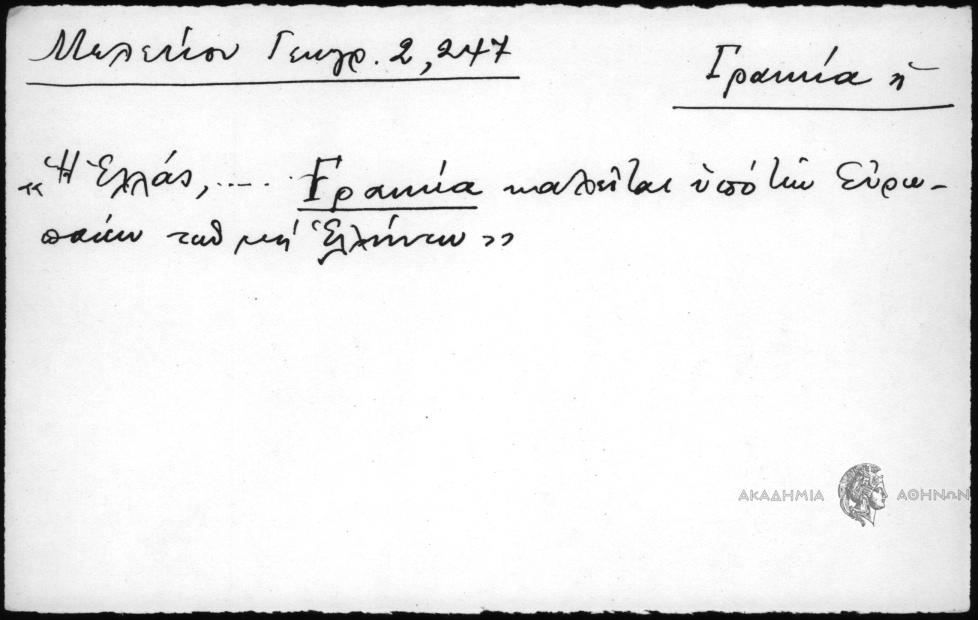 Μελετίου Γεωγρ. 2,247
Γραικία ἡ
«Ἡ Ἑλλάς, ..... Γραικία καλεῖται ὑπὸ τῶν Εὐρω-
παίων καὶ μὴ Ἑλλήνων»
ΑΚΑΔΗΜΙΑ ΑΘΗΝΩΝ